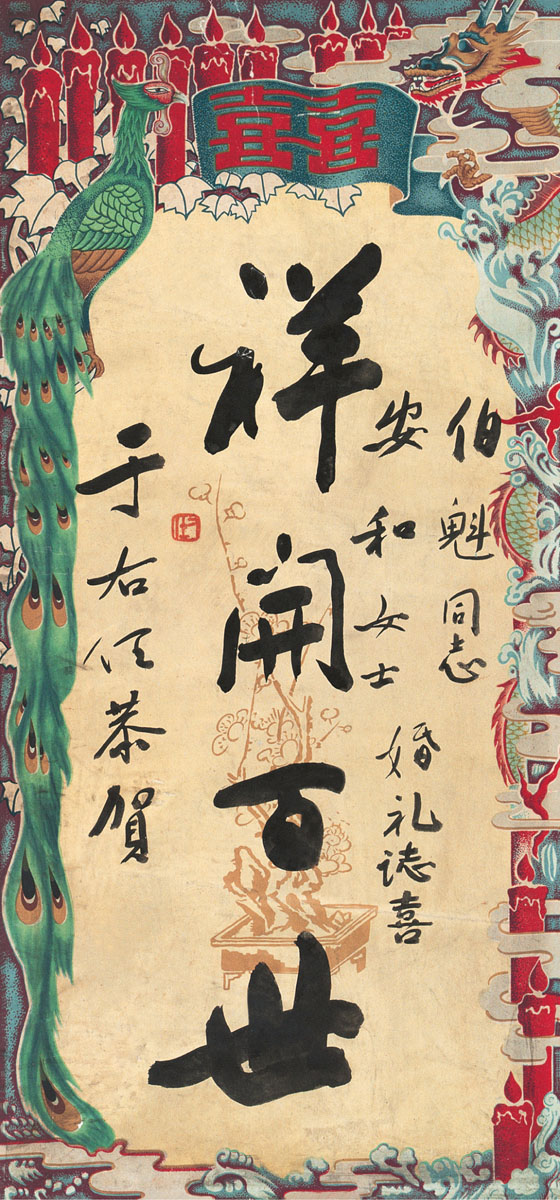 囍
伯魁同志
安和女士
婚礼誌喜
祥開百世
于右任恭賀